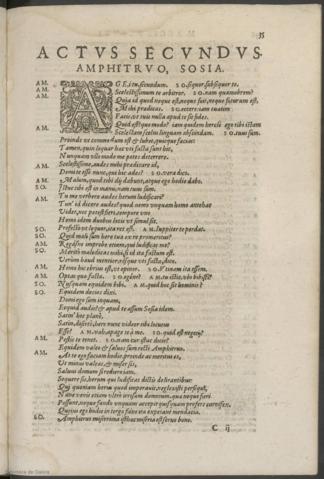 35
ACTVS SECVNDVS.
AMPHITRVO, SOSIA.
AM. AGE, i tu, secundum. SO. sequor, subsequor te.
AM. Scelestissimum te arbitror. SO. nam quamobrem?
AM. Quia id quod neque est, neque fuit, neque futurum est,
Mihi praedicas. SO. eccere, iam tuatim
Facis, ut tuis nulla apud te sit fides.
Quid est? quo modo? iam quidem hercle ego tibi istam
AM. Scelestam scelus linguam abscindam. SO. tuus sum.
Proinde ut commodum est & lubet, quicque facias:
Tamen, quin loquar haec uti facta sunt hic,
Nunquam ullo modo me potes deterrere.
AM. Scelestissime, audes mihi praedicare id,
Domi te esse nunc, qui hic ades? SO. vera dico.
AM. Malum, quod tibi dij dabunt, atque ego hodie dabo.
SO. Istuc tibi est in manu, nam tuus sum.
AM. Tu me verbero audes herum ludificare?
Tun' id dicere audes? quod nemo unquam homo antehac
Vidit, nec potest fieri, tempore uno
Homo idem duobus locis ut simul sit.
SO. Profecto ut loquor, ita res est. AM. Iuppiter te perdat.
SO. Quid mali sum here tua ex re promeritus?
AM. Rogasne improbe etiam, qui ludificas me?
SO. Merito maledicas mihi, si id ita factum est.
Verum haud mentior, resque uti facta, dico.
AM. Homo hic ebrius est, ut opinor. SO. Vtinam ita essem.
AM. Optas quae facta. SO. egone? AM. tu istic. ubi bibisti?
SO. Nusquam equidem bibi. AM. quid hoc sit hominis?
SO. Equidem decies dixi.
Domi ego sum inquam,
Ecquid audis? & apud te assum Sosia idem.
Satin' hoc plane,
Satin, diserte, here nunc videor tibi locutus
Esse? AM. vah, apage te a me. SO. quid est negotij?
AM. Pestis te tenet. SO. nam cur istuc dicis?
Equidem valeo & salvus sum recte Amphitruo.
AM. At te ego faciam hodie, proinde ac meritus es,
Vt minus valeas, & miser sis,
Salvus domum si rediero iam.
Sequere sis, herum qui ludificas dictis delirantibus:
Qui quoniam herus quod imperavit, neglexisti persequi,
Nunc venis etiam ultro irrisum dominum, quae neque fieri
Possunt, neque fando unquam accepit quisquam profers carnifex.
Quoius ego hodie in tergo faxo ista expetant mendacia.
SO. Amphitruo miserrima istaec miseria est servo bono.
C ij